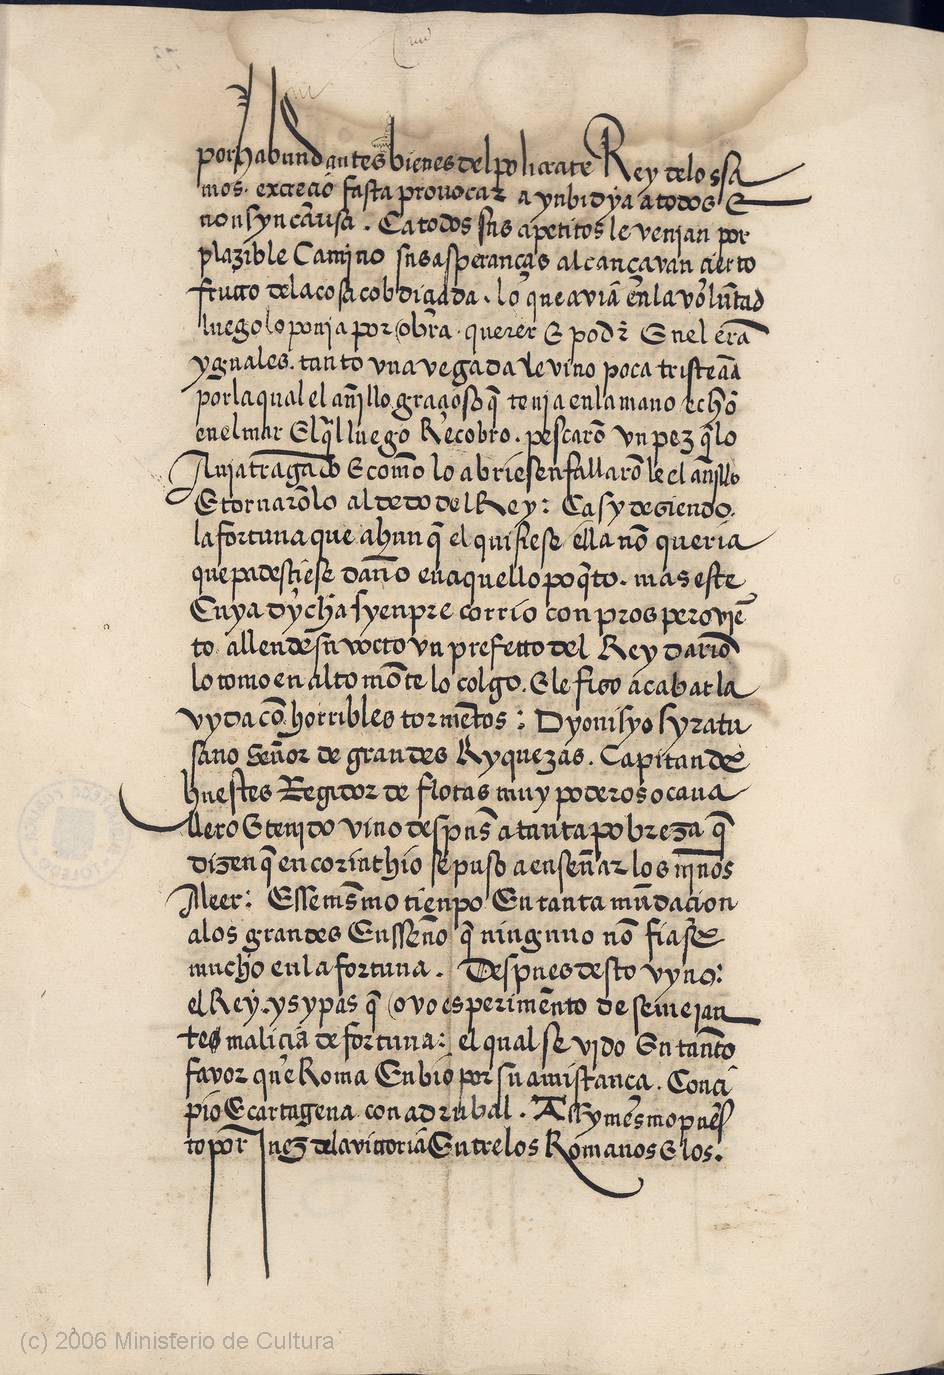 por habundantes bienes del policrate Rey de los sa
mos. excrecio fasta provocar a ynbidya a todos E
non syn causa. Ca todos sus apetitos le venian por
plazible Camino sus asperanças alcançavan cierto
frutto de la cosa cobdiciada. lo que aviā en la volūtad
luego lo ponia por obra. querer E podr̄ En el erā
yguales. tanto una vegada le vino poca tristeza
por la qual el añillo graciosō q̄ tenia en la mano echō
en el mar El q̄l luego Recobro. pescarō un pez q̄ lo
Avia tragado E como lo abriesen fallarō le el añillo
E tornarōlo al dedo del Rey: Ca sy deziendo
la fortuna que ahun q̄ el quisiese ella nō queria
que padesciese daño en aquello poq̄to. mas este
Cuya dycha syenpre corrio con prospero viē
to. allende su un prefetto del Rey dario
lo tomo en alto mōte lo colgo. E le fizo acabar la
vyda cō horribles tormētos: Dyonisyo syratu
sano Señor de grandes Ryquezas. Capitan de
huestes Regidor de flotas muy poderoso cava
llero E tenido vino despuēs a tanta pobreza q̄
dizen q̄ en corinthio se puso a enseñar los niños
A leer: Esse mesmo tienpo En tanta mūdacion
a los grandes Ensseño q̄ ninguno nō fiase
mucho en la fortuna. Despues desto vyno:
el Rey. ysypas q̄ ovo esperimēto de semejan
tes malicia de fortuna: el qual se vido En tanto
favor que Roma Enbio por su amistança. Conci
pio E cartagena con adrubal. Assy mesmo pues
to por Juez de la vittoria Entre los Romanos E los.
(c) 2006 Ministerio de Cultura